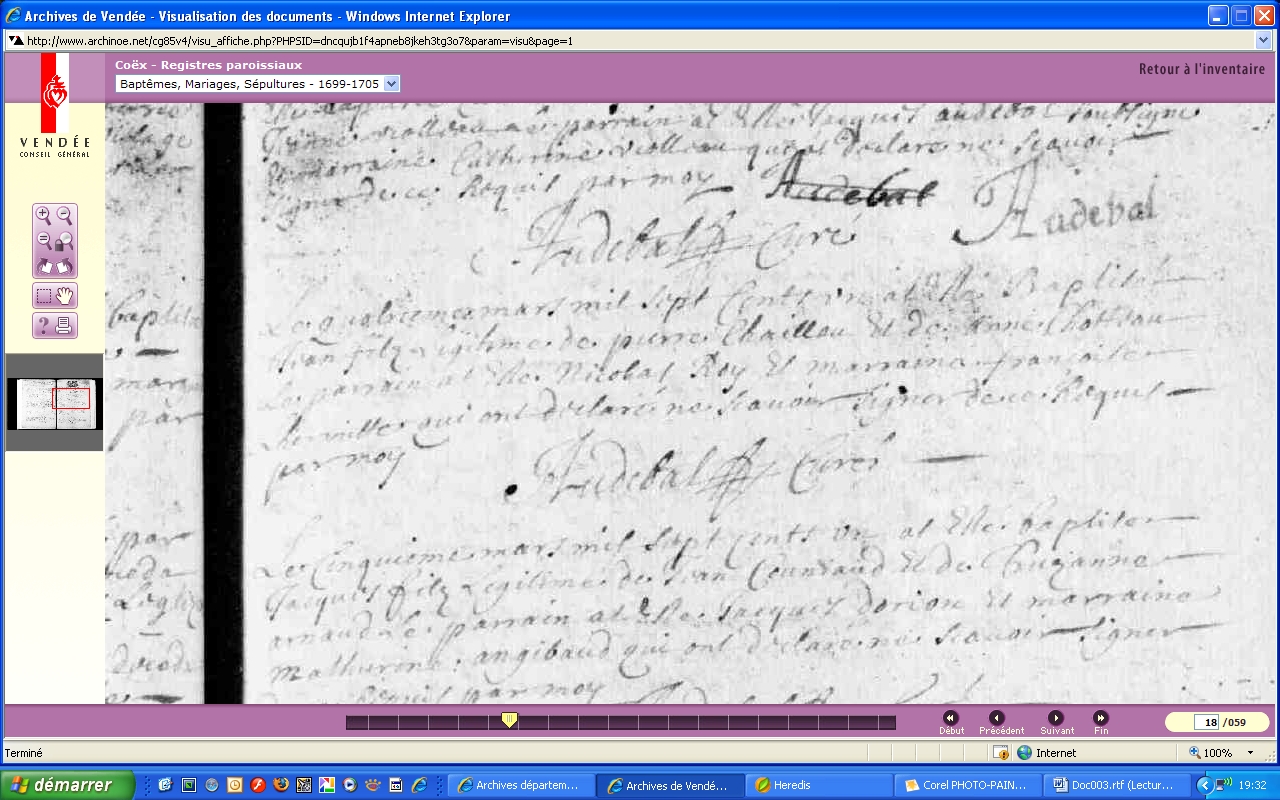 Archives de Vendée - Visualisation des documents - Windows Internet Explorer
http://www.archinoe.net/cg85v4/visu_affiche.php?PHPSID=dncqujb1f4apneb8jkeh3tg3o7&param=visu&page=1
Coëx - Registres paroissiaux
Retour à l'inventaire
Baptêmes, Mariages, Sépultures - 1699-1705
VENDÉE
CONSEIL GÉNÉRAL
parrain at Este Jacques audebal soubsigné
marraine Catherine violleau qui a declare ne scavoir
signer de ce Requis par moy Audebal Audebal
Audebal Curé
Le quatriesme mars mil sept Cents un at Esté Baptiser
Jean filz Legitime de pierre Chaillou Et de Anne
Le parrain at Este Nicolas Roy Et marraine françoise
qui ont declare ne scavoir signer de ce Requis
par moy
Audebal Curé
Le Cinquieme mars mil sept Cents un at Este baptiser
Jacques filz Legitime de Jean Et de Suzanne
arnaud Le parrain at Este Jacques dorion Et marraine
mathurine angibaud qui ont declare ne scavoir signer
Requis par moy
baptise
mars
par
par
Début
Précédent
Suivant
Fin
18 /059
Terminé
Internet
100%
démarrer
Archives départem...
Archives de Vendé...
Heredis
Corel PHOTO-PAIN...
Doc003.rtf (Lectur...
19:32